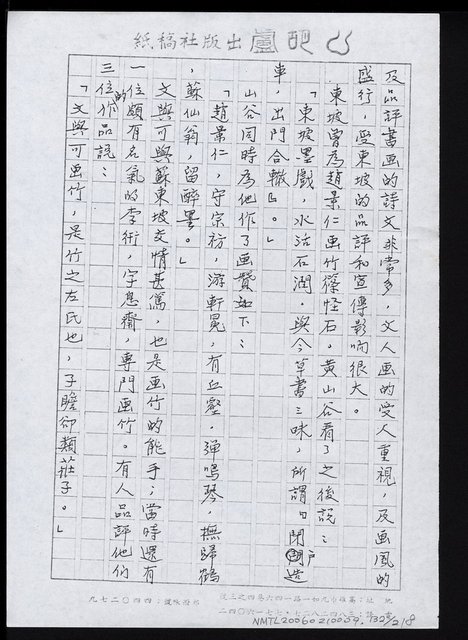 紙稿社版出廬心
及品評書画的詩文非常多，文人画的受人重視，及画風的
盛行，受東坡的品評和宣傳影响很大。
東坡曾為趙景仁画竹篠怪石。黃山谷看了之後說：
「東坡墨戲，水活石潤。與今草書三昧，所謂曰閉戶造
車，出門合轍』。」
山谷同時為他作了画贊如下：
「趙景仁，守宗祊，游軒冕，有丘壑，彈鳴琴，撫歸鶴
，蘇仙翁，留醉墨。」
文與可與蘇東坡交情甚篤，也是画竹的能手；當時還有
一位頗有名氣的李衎，字息齋，專門画竹。有人品評他們
三位的作品說：
「文與可画竹，是竹之左氏也，子瞻卻類莊子。」
NMTL20060210059, 132/218